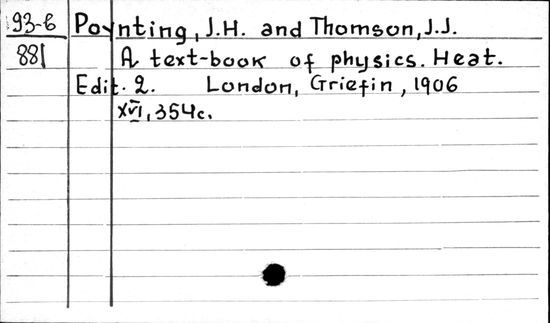 93-6 Poynting, J.H. and Thomson, J.J.
881 A text-book of physics. Heat.
Edit. 2. London, Griefin, 1906
XVI, 354c.